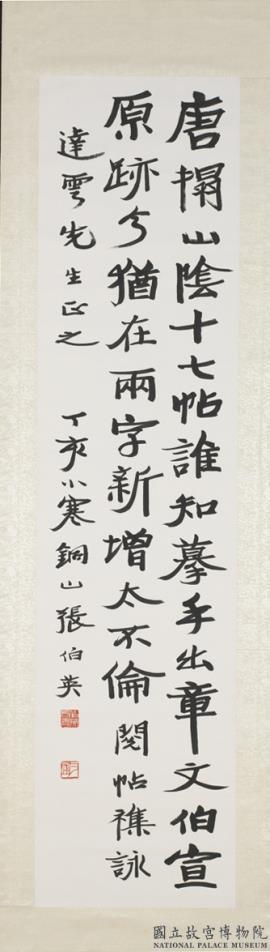 唐搨山陰十七帖誰知摹手出章文伯宣
原跡今猶在兩字新增太不倫 閱帖襍詠
達雲先生正之 丁亥小寒銅山張伯英
國立故宮博物院
NATIONAL PALACE MUSEUM